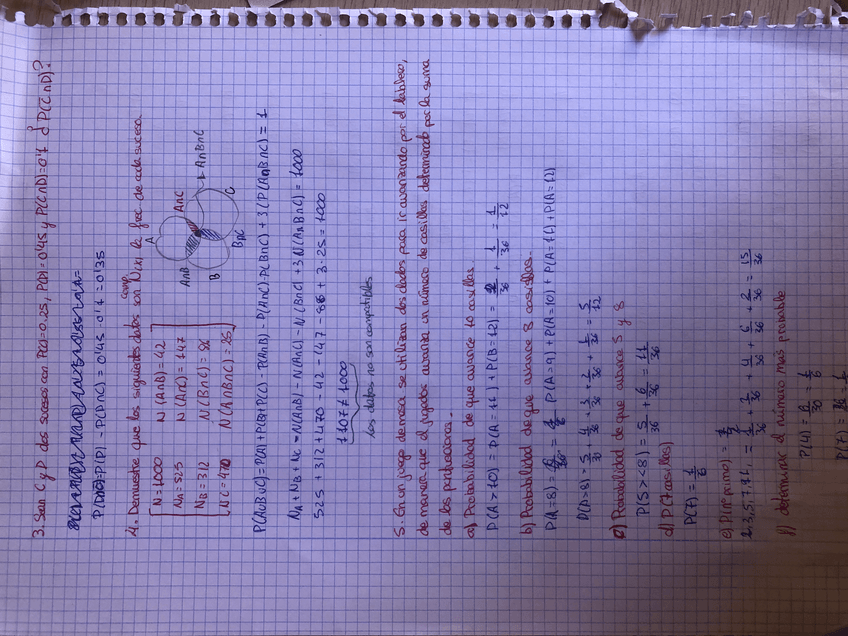 3. Sean C y D dos sucesos con P(C)=0.25, P(D)=0'45 y P(C∩D)=0'1 ¿P(C̄∩D)?
P(D)-P(D∩C) = 0'45-0'1 = 0'35
4. Demuestre que los siguientes datos son comp. N(x) la frec de cada suceso.
N=1000 N(A∩B)=42
NA=525 N(A∩C)=147
NB=312 N(B∩C)=86
NC=470 N(A∩B∩C)=25
A
A∩B
A∩C
A∩B∩C
B
B∩C
C
P(A∪B∪C)=P(A)+P(B)+P(C)-P(A∩B)-P(A∩C)-P(B∩C)+3(P(A∩B∩C)=1
NA+NB+NC-N(A∩B)-N(A∩C)-N(B∩C)+3N(A∩B∩C)=1000
525+312+470-42-147-86+3·25=1000
1107≠1000
Los datos no son compatibles
5. En un juego de mesa se utilizan dos dados para ir avanzando por el tablero,
de manera que el jugador avanza un número de casillas determinado por la suma
de las puntuaciones.
a) Probabilidad de que avance 10 casillas.
P(A>10) = P(A=11)+P(B=12) = 2/36 + 1/36 = 1/12
b) Probabilidad de que avance 8 casillas.
P(A=9)+P(A=10)+P(A=11)+P(A=12)
P(A>8) = 4/36 + 3/36 + 2/36 + 1/36 = 5/12
Probabilidad de que avance 5 y 8
P(5><8) = 5/36 + 6/36 = 11/36
d) P(7 casillas)
P(7) = 1/6
e) P(nº primo)
2,3,5,7,11, = 1/36 + 2/36 + 4/36 + 6/36 + 2/36 = 15/36
f) determinar el número más probable